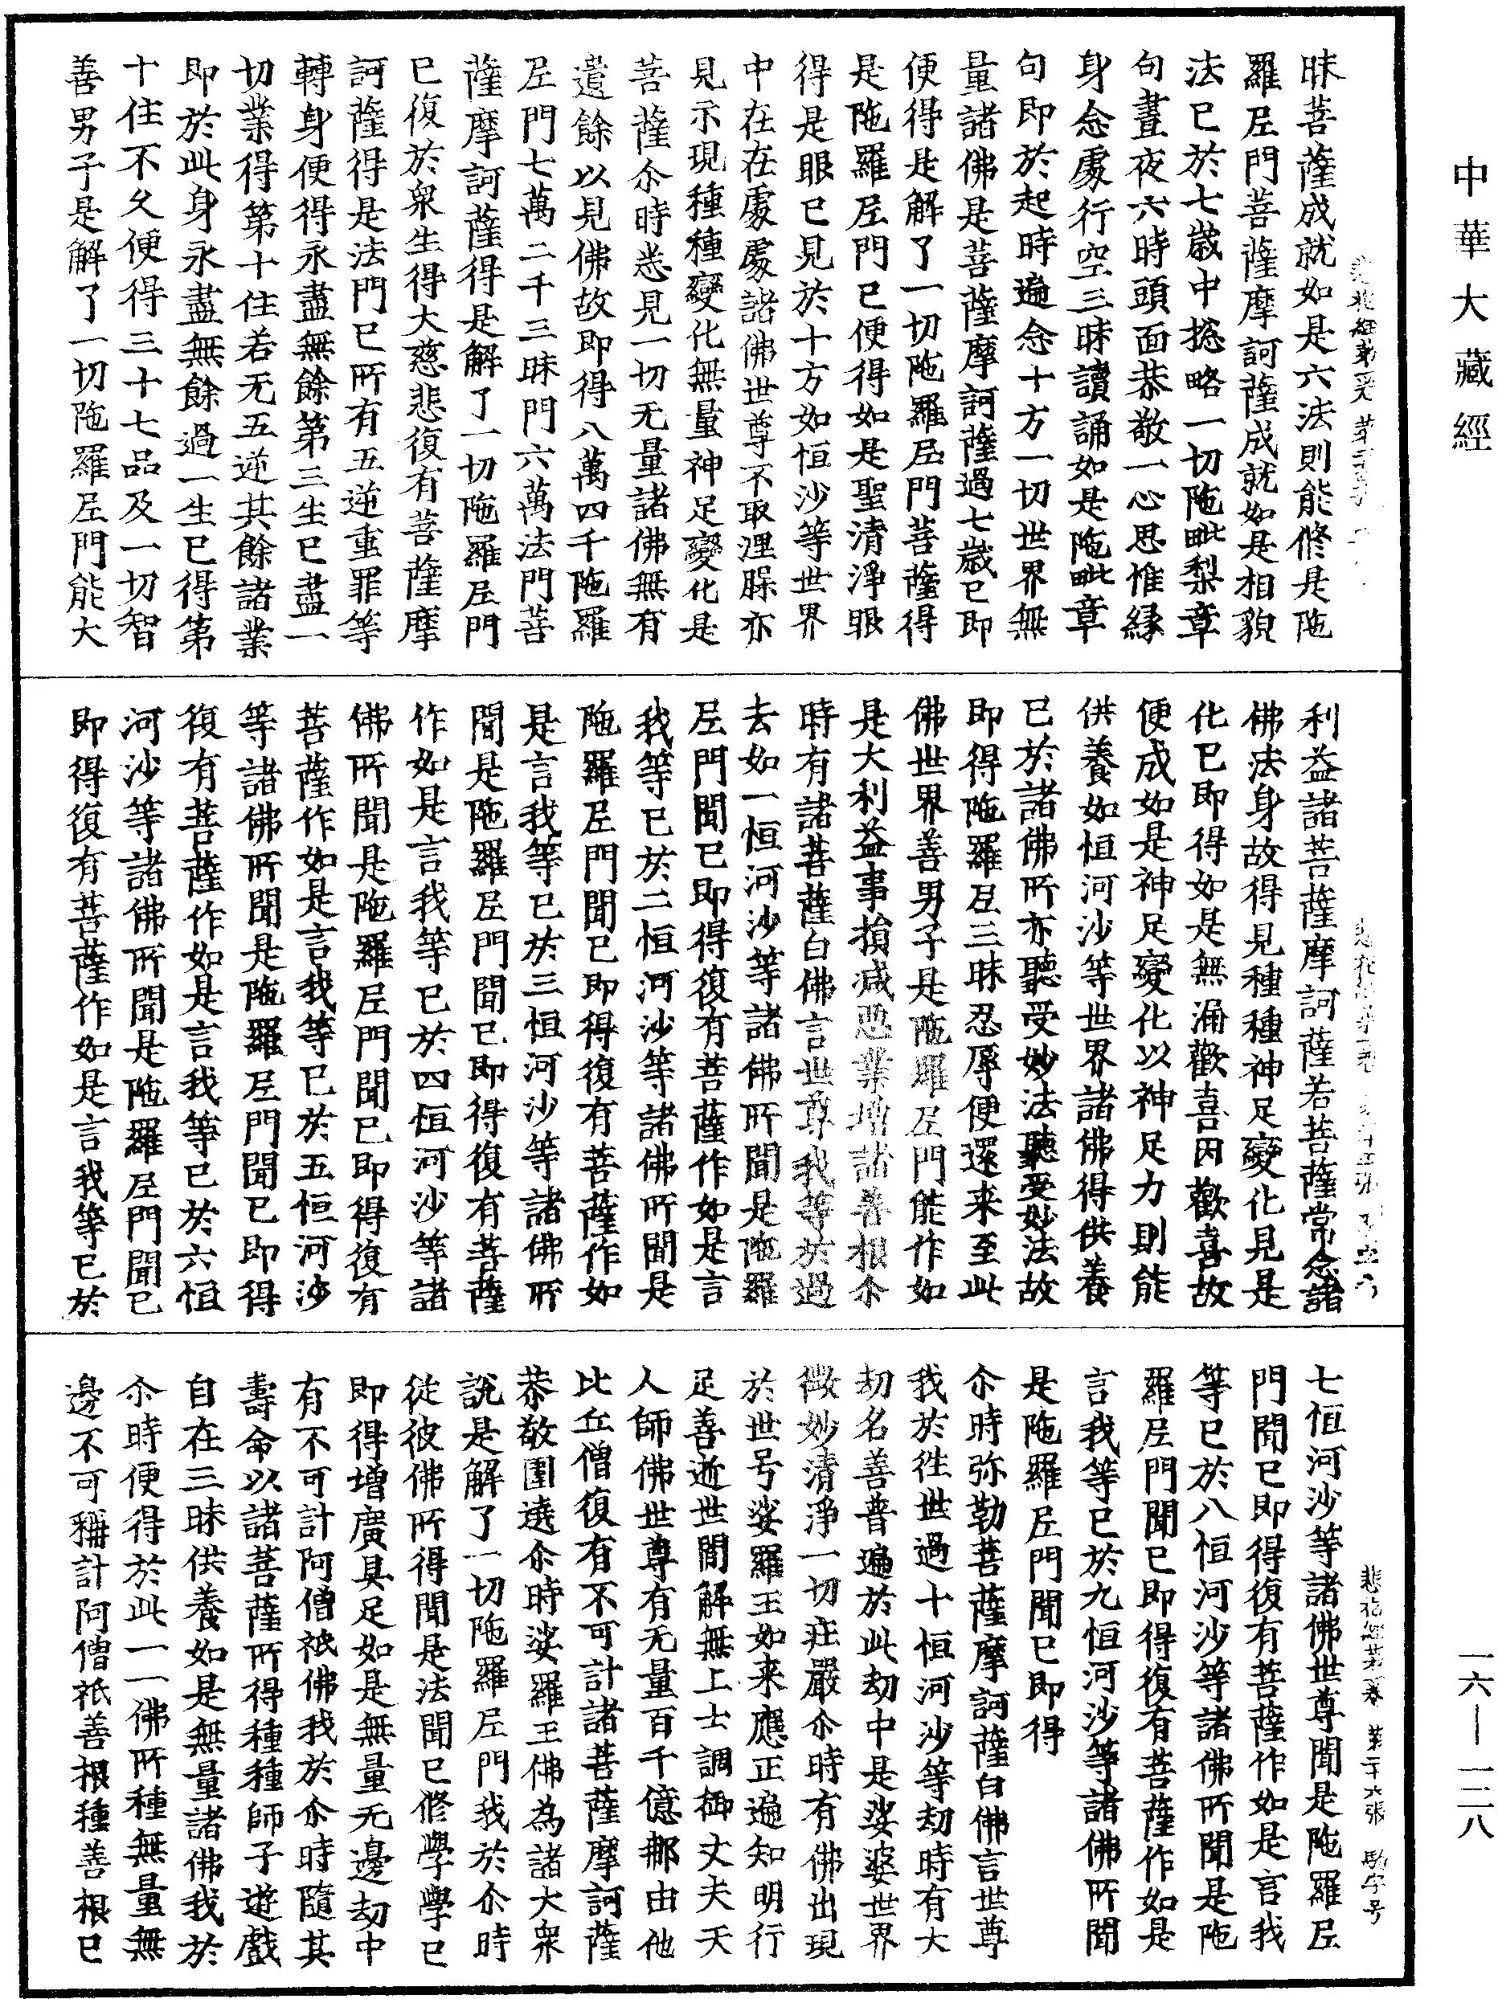 中華大藏經
昧菩薩成就如是六法則能修是陁
羅𡰱門菩薩摩訶薩成就如是相貌
法已於七歲中揔略一切陁毗梨章
句晝夜六時頭面恭敬一心思惟緣
身念處行空三昧讀誦如是陁毗章
句即於起時遍念十方一切世界無
量諸佛是菩薩摩訶薩過七歲已即
便得是解了一切陁羅𡰱門菩薩得
是陁羅𡰱門已便得如是聖清淨眼
得是眼已見於十方如恒沙等世界
中在在處處諸佛世尊不取涅槃亦
見示現種種變化無量神足變化是
菩薩尒時悉見一切无量諸佛無有
遺餘以見佛故即得八萬四千陁羅
𡰱門七萬二千三昧門六萬法門菩
薩摩訶薩得是解了一切陁羅𡰱門
已復於衆生得大慈悲復有菩薩摩
訶薩得是法門已所有五逆重罪等
轉身便得永盡無餘第三生已盡一
切業得第十住若无五逆其餘諸業
即於此身永盡無餘過一生已得第
十住不久便得三十七品及一切智
善男子是解了一切陁羅𡰱門能大
利益諸菩薩摩訶薩若菩薩常念諸
佛法身故得見種種神足變化見是
化已即得如是無漏歡喜因歡喜故
便成如是神足變化以神足力則能
供養如恒河沙等世界諸佛得供養
已於諸佛所亦聽受妙法聽受妙法故
即得陁羅𡰱三昧忍辱便還来至此
佛世界善男子是陁羅𡰱門能作如
是大利益事損減惡業增諸善根尒
時有諸菩薩白佛言世尊我等於過
去如一恒河沙等諸佛所聞是陁羅
𡰱門聞已即得復有菩薩作如是言
我等已於二恒河沙等諸佛所聞是
陁羅𡰱門聞已即得復有菩薩作如
是言我等已於三恒河沙等諸佛所
聞是陁羅𡰱門聞已即得復有菩薩
作如是言我等已於四恒河沙等諸
佛所聞是陁羅𡰱門聞已即得復有
菩薩作如是言我等已於五恒河沙
等諸佛所聞是陁羅𡰱門聞已即得
復有菩薩作如是言我等已於六恒
河沙等諸佛所聞是陁羅𡰱門聞已
即得復有菩薩作如是言我等已於
七恒河沙等諸佛世尊聞是陁羅𡰱
門聞已即得復有菩薩作如是言我
等已於八恒河沙等諸佛所聞是陁
羅𡰱門聞已即得復有菩薩作如是
言我等已於九恒河沙等諸佛所聞
是陁羅𡰱門聞已即得
尒時弥勒菩薩摩訶薩白佛言世尊
我於往世過十恒河沙等劫時有大
劫名善普遍於此劫中是娑婆世界
微妙清淨一切莊嚴尒時有佛出現
於世号娑羅王如来應正遍知明行
足善逝世間解無上士調御丈夫天
人師佛世尊有无量百千億那由他
比丘僧復有不可計諸菩薩摩訶薩
恭敬圍遶尒時娑羅王佛為諸大衆
說是解了一切陁羅𡰱門我於尒時
從彼佛所得聞是法聞已修學學已
即得增廣具足如是無量无邊劫中
有不可計阿僧祇佛我於尒時隨其
壽命以諸菩薩所得種種師子遊戲
自在三昧供養如是無量諸佛我於
尒時便得於此一一佛所種無量無
邊不可稱計阿僧祇善根種善根已
一六—一二八